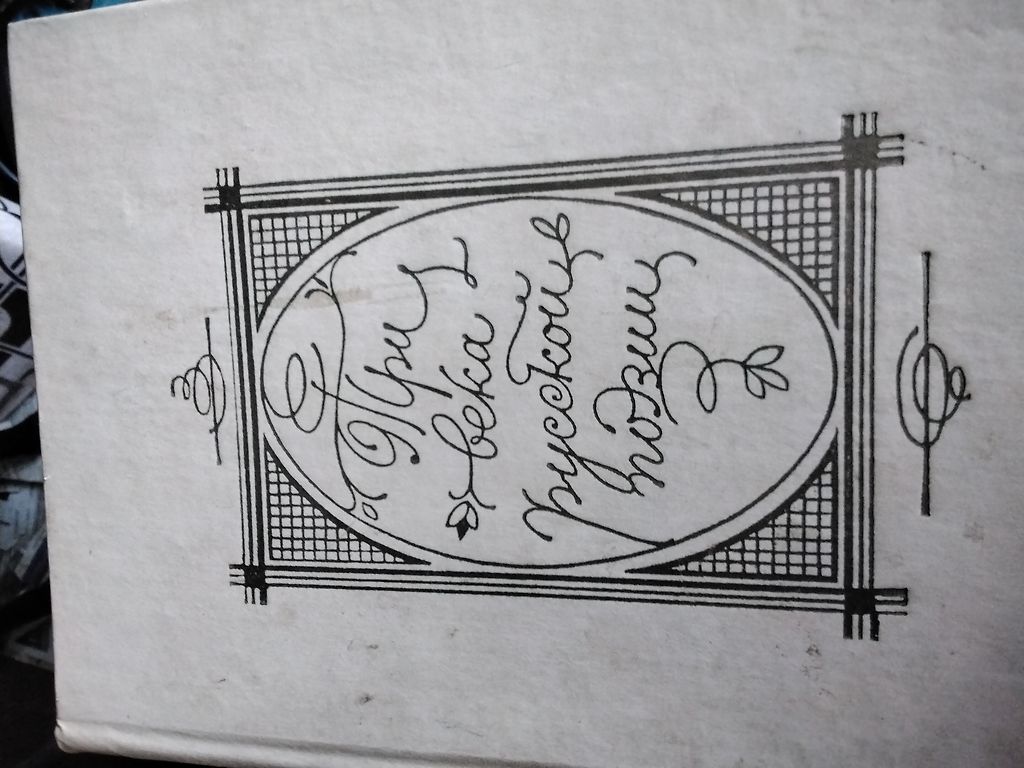 Три
века
русской
поэзии